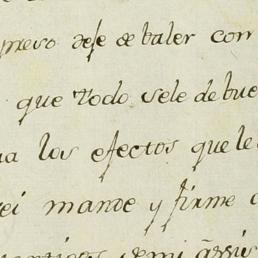 nuevo dese de baler com
que todo sele de bue
a los efectos que le
ei mande y firme
de mi